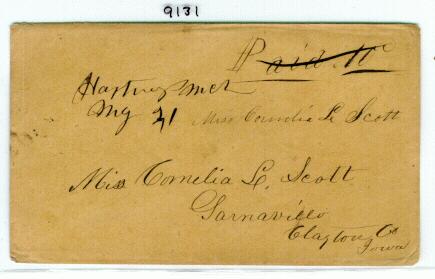 9131
Paid
Hastings Mch
My 21
Miss Cornelia L Scott
Miss Cornelia L. Scott
Garnavillo
Clayton Co
Iowa